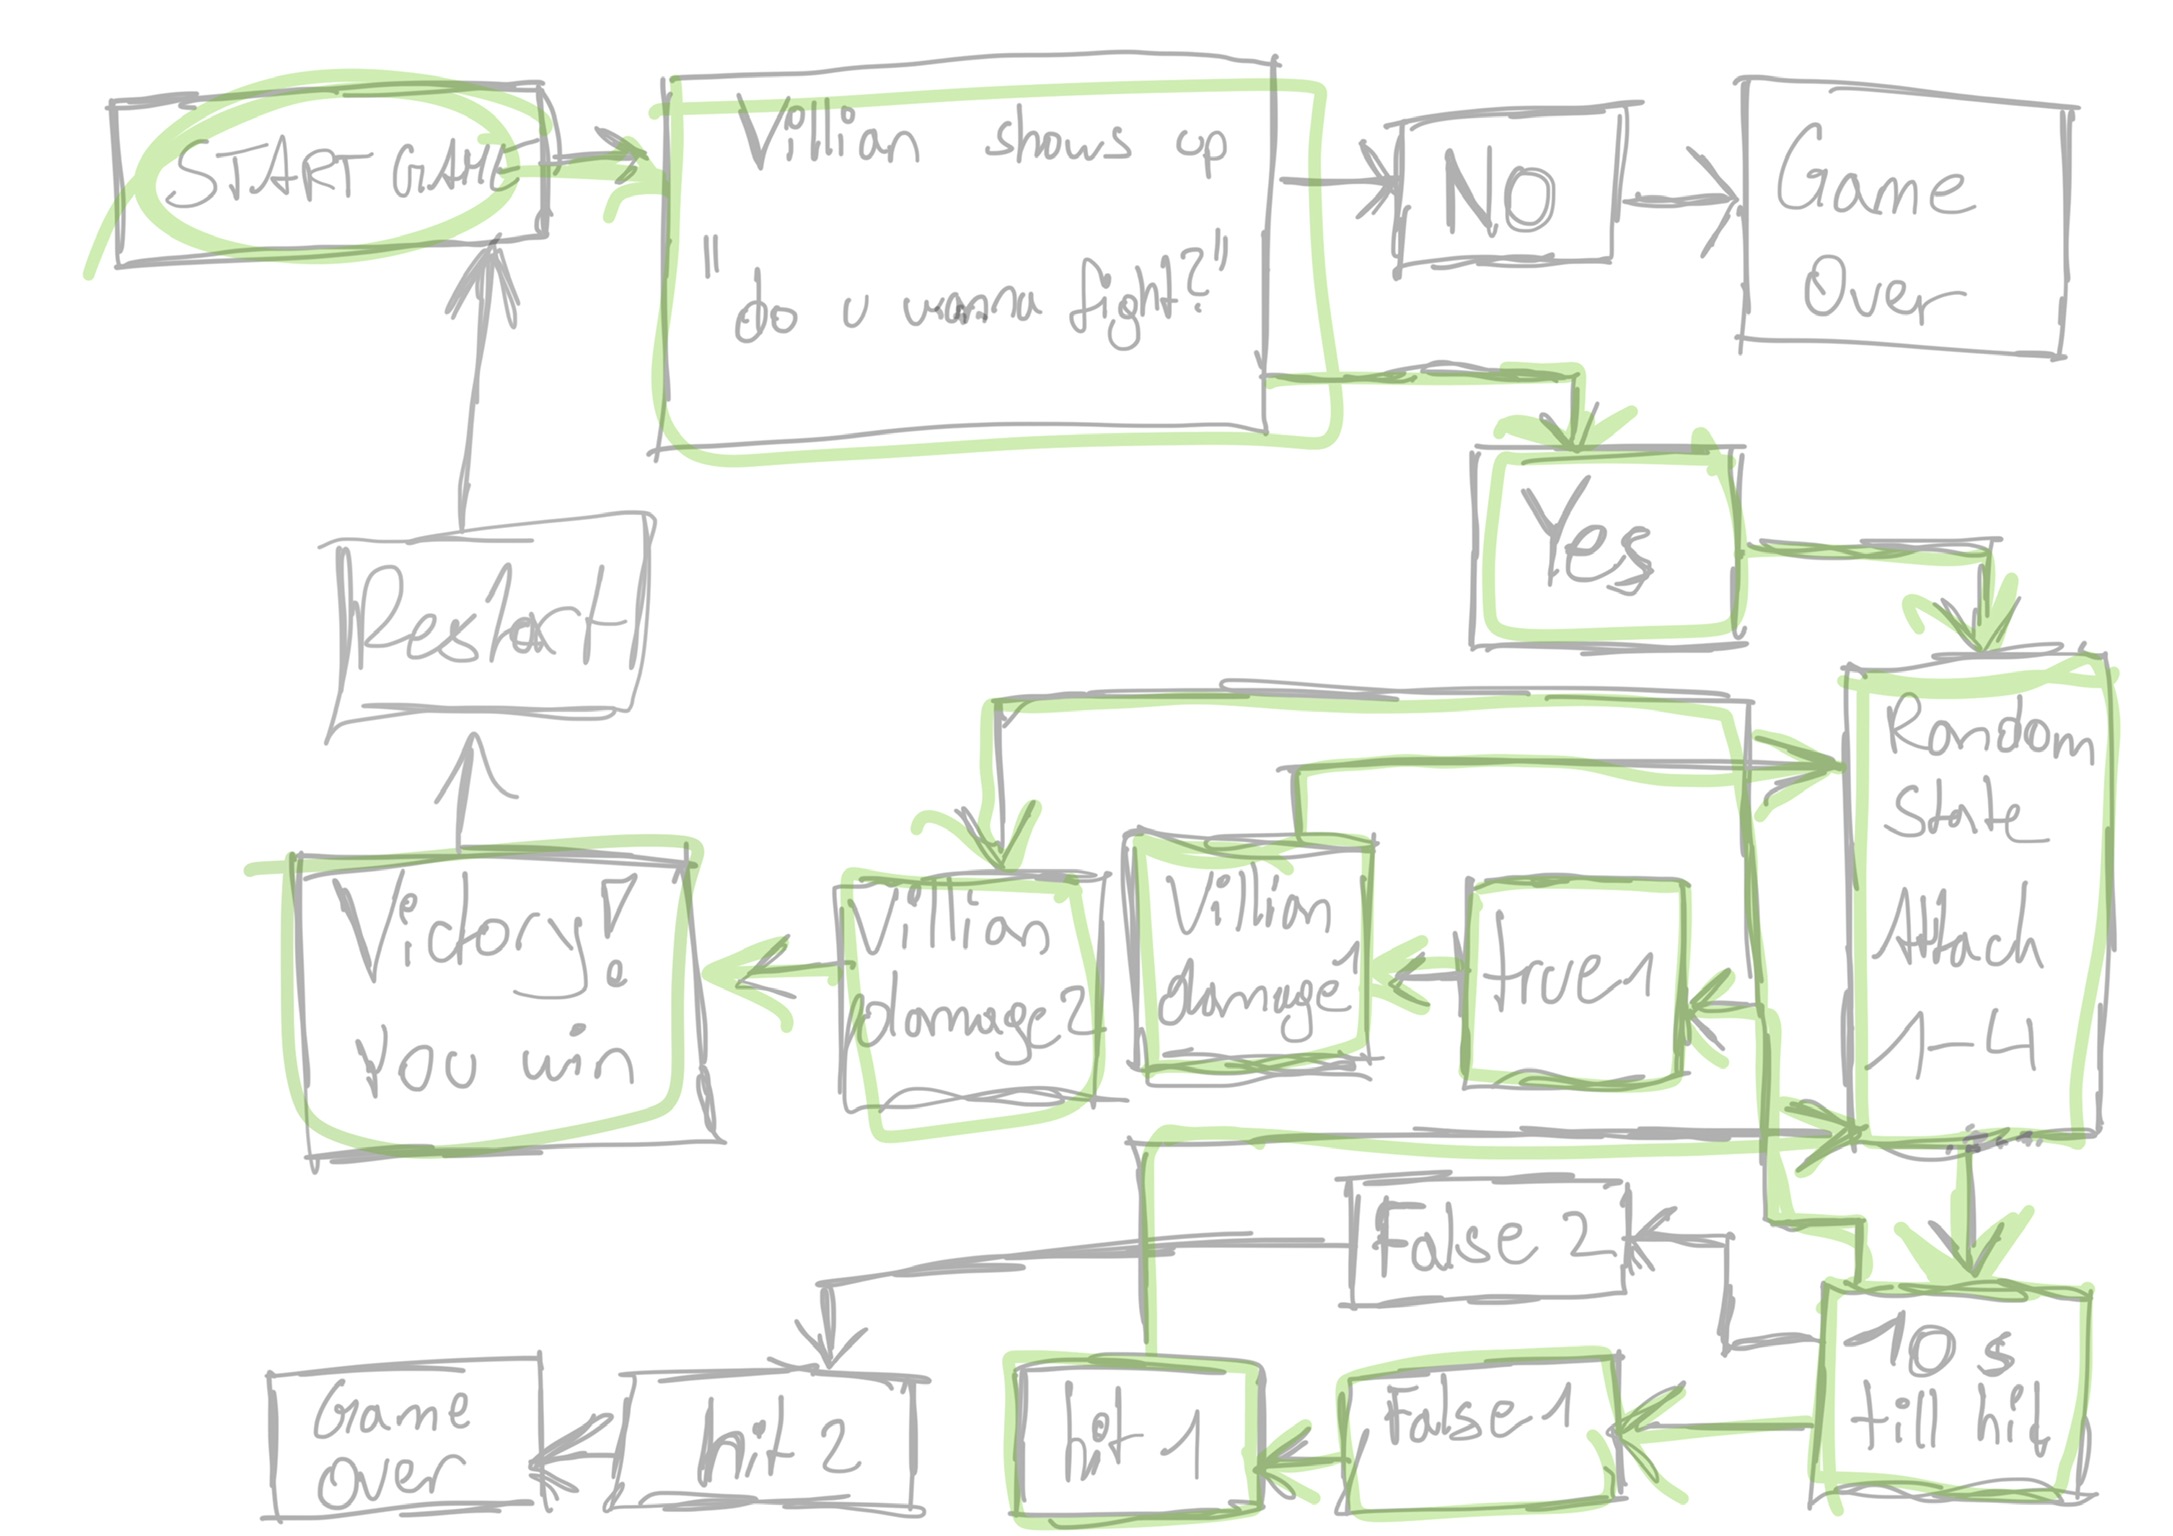 START GAME
Villian shows up
"do u wanna fight?"
NO
Game
Over
Yes
Restart
Random
State
Attack
1-4
Victory!
You win
Villian
damage 2
Villian
damage 1
true 1
False 2
10 s
till hit
False 1
hit 1
hit 2
Game
Over